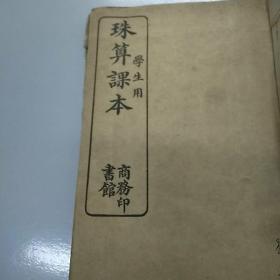 珠算課本
學生用
商務印
書館